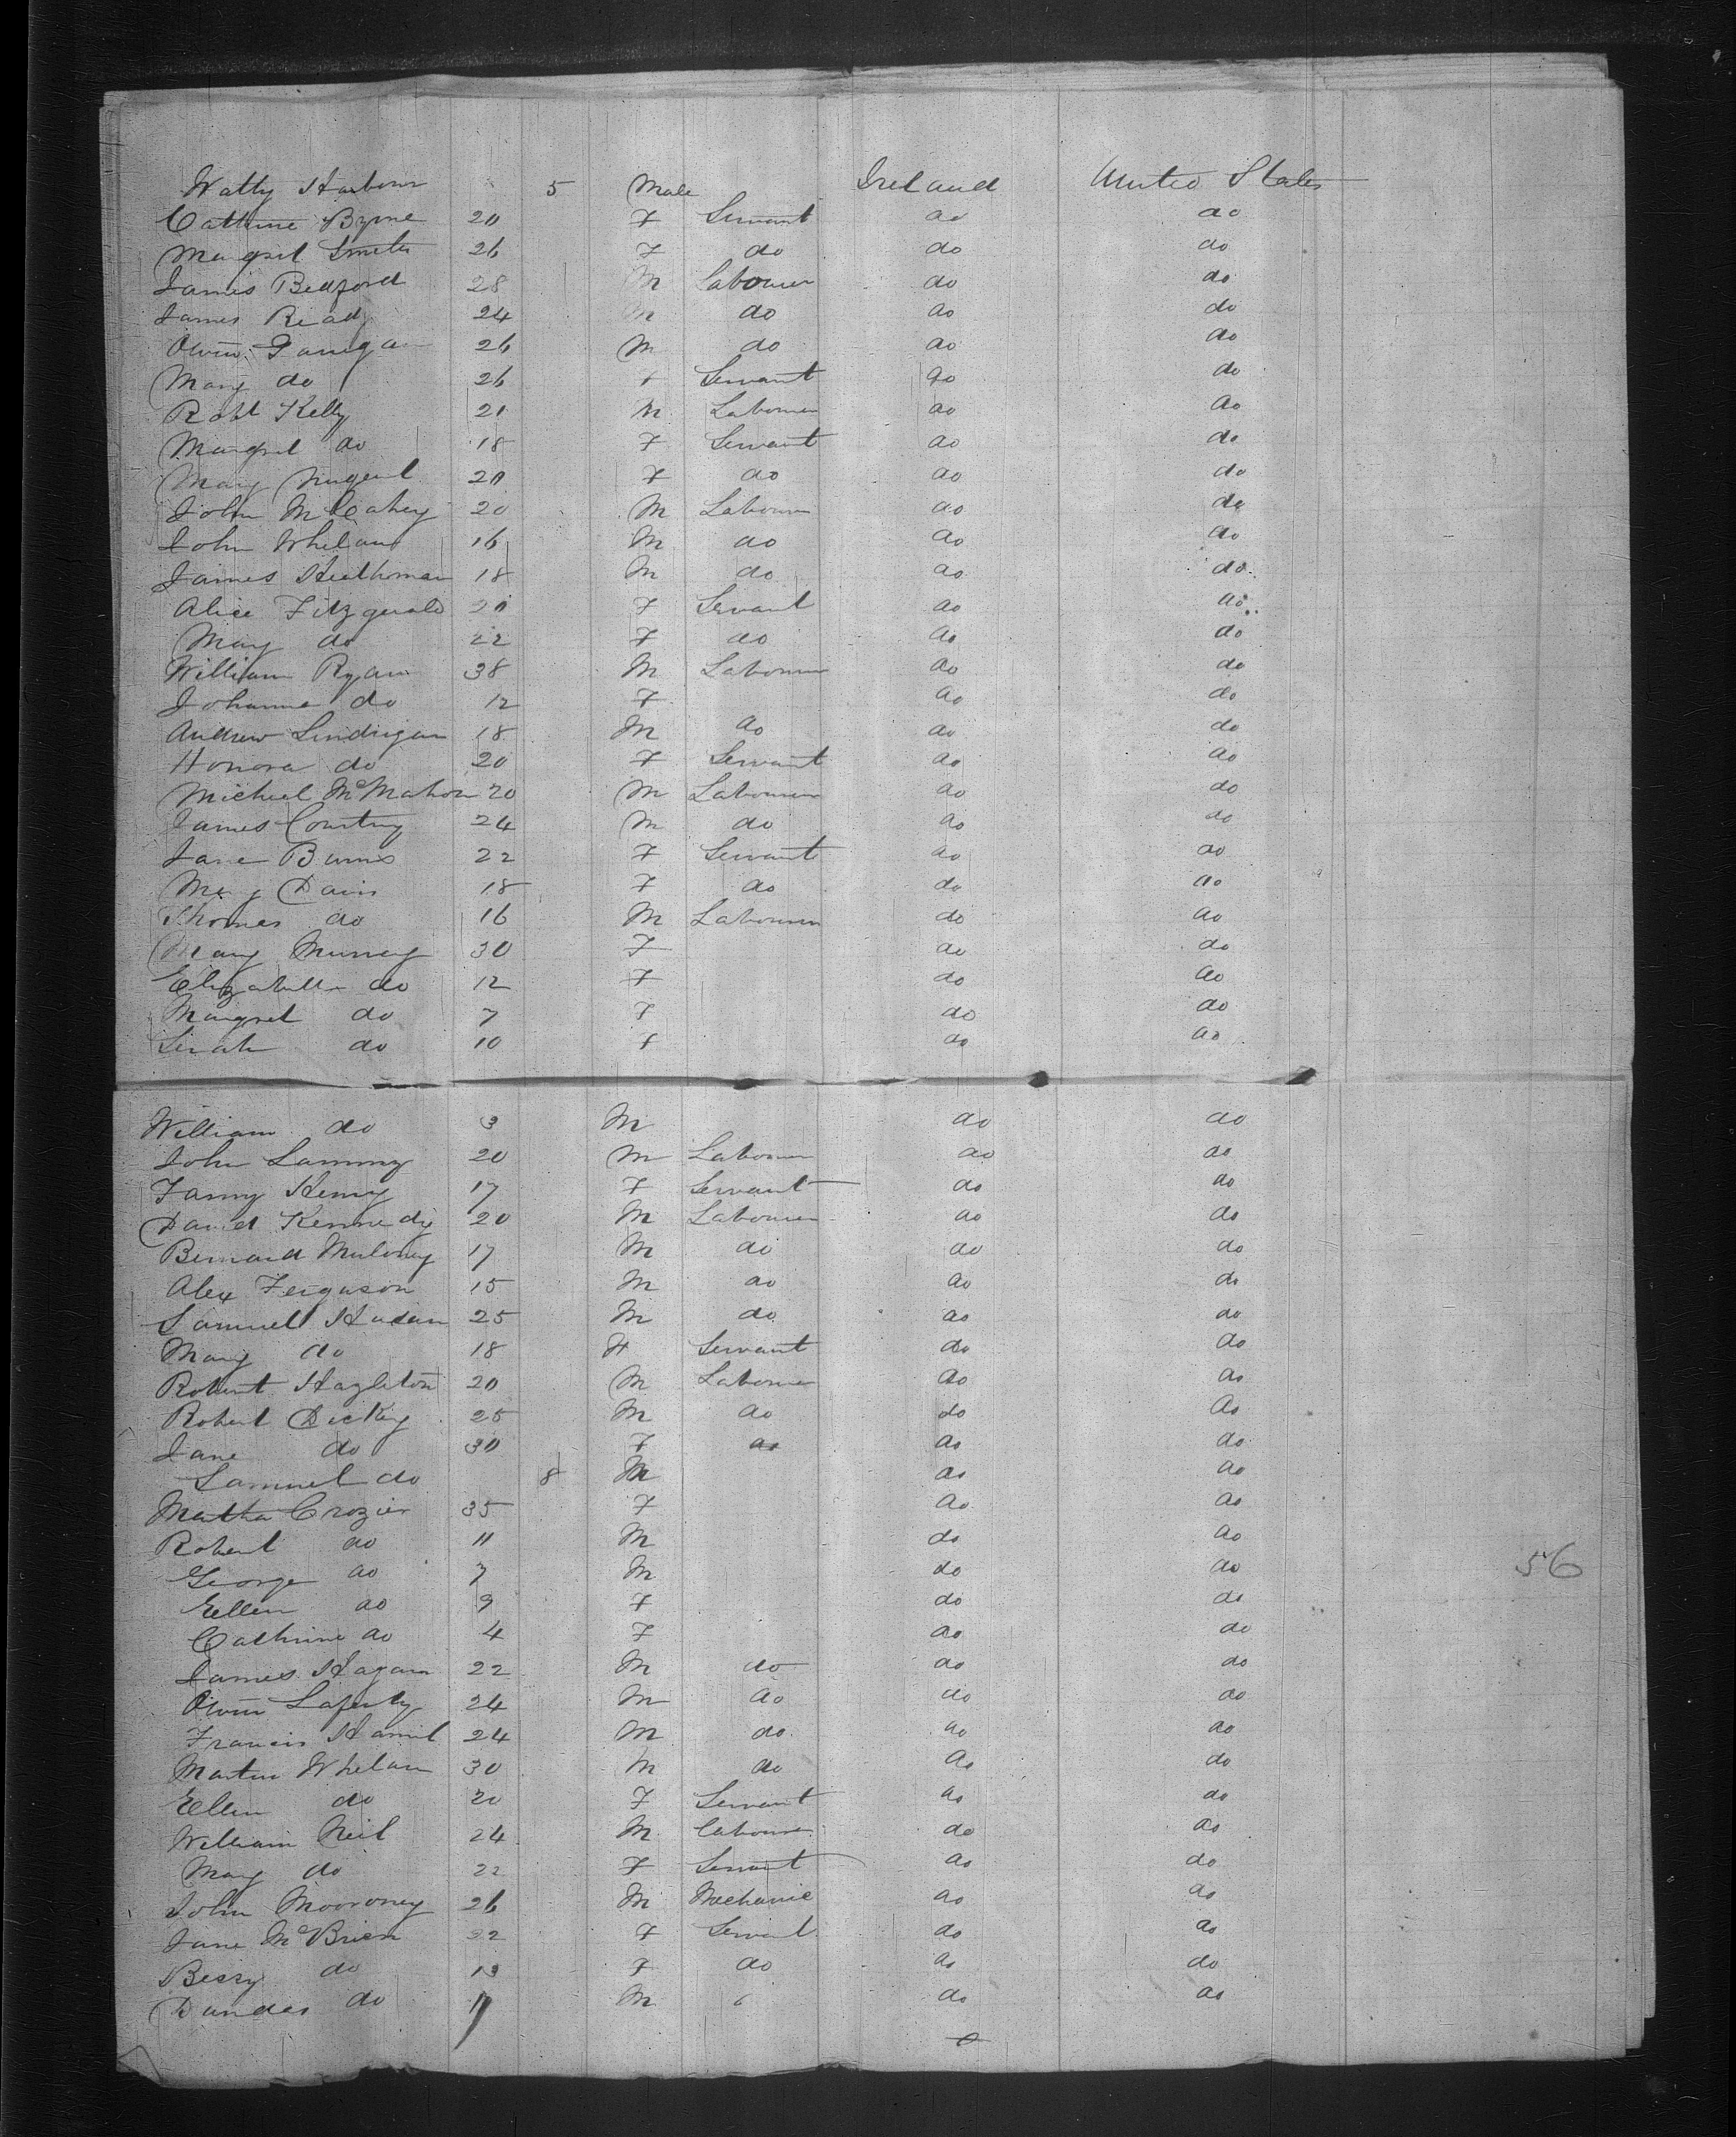 Watty Harbour 5 Male Ireland United States
Cathrine Byrne 20 F Servant do do
Margret Smith 26 F do do do
James Bedford 28 M Labourer do do
James Read 24 M do do do
Owen 26 M do do do
Mary do 26 f Servant do do
Robt Kelly 21 M Labourer do do
Margret do 18 F Servant do do
Mary Nugent 20 F do do do
John McCahey 20 M Labourer do do
John Whelan 16 M do do do
James 18 M do do do
Alice Fitzgerald 20 F Servant do do
Mary do 22 F do do do
William Ryan 38 M Labourer do do
Johanna do 12 F do do
Andrew Lindrigan 18 M do do do
Honora do 20 F Servant do do
Michael McMahon 20 M Labourer do do
James Courtny 24 M do do do
Jane Burns 22 F Servant do do
Mary Davis 18 F do do do
Thomas do 16 M Labourer do do
Mary Murrey 30 F do do
Elizabeth do 12 F do do
Margret do 7 F do do
Sarah do 10 f do do
William do 3 M do do
John Lammy 20 M Labourer do do
Fanny Henry 17 F Servant do do
Daniel Kennedy 20 M Labourer do do
Bernard Muloney 17 M do do do
Alex Ferguson 15 M do do do
Samuel 25 M do do do
Mary do 18 F Servant do do
Robert Hazleton 20 M Labourer do do
Robert Dickey 25 M do do do
Jane do 30 F do do do
Samuel do 8 M do do
Martha Crozier 35 F do do
Robert do 11 M do do
George do 7 M do do 56
Ellen do 9 F do do
Cathrine do 4 F do do
James Hagan 22 M do do do
Owen Laferty 24 M do do do
Francis Hamil 24 M do do do
Martin Whelan 30 M do do do
Ellen do 20 F Servant do do
William Neil 24 M Labourer do do
Mary do 22 F Servant do do
John Mooroney 26 M Mechanic do do
Jane McBrien 22 F Servant do do
Bessy do 13 F do do do
Dundas do 17 M do do